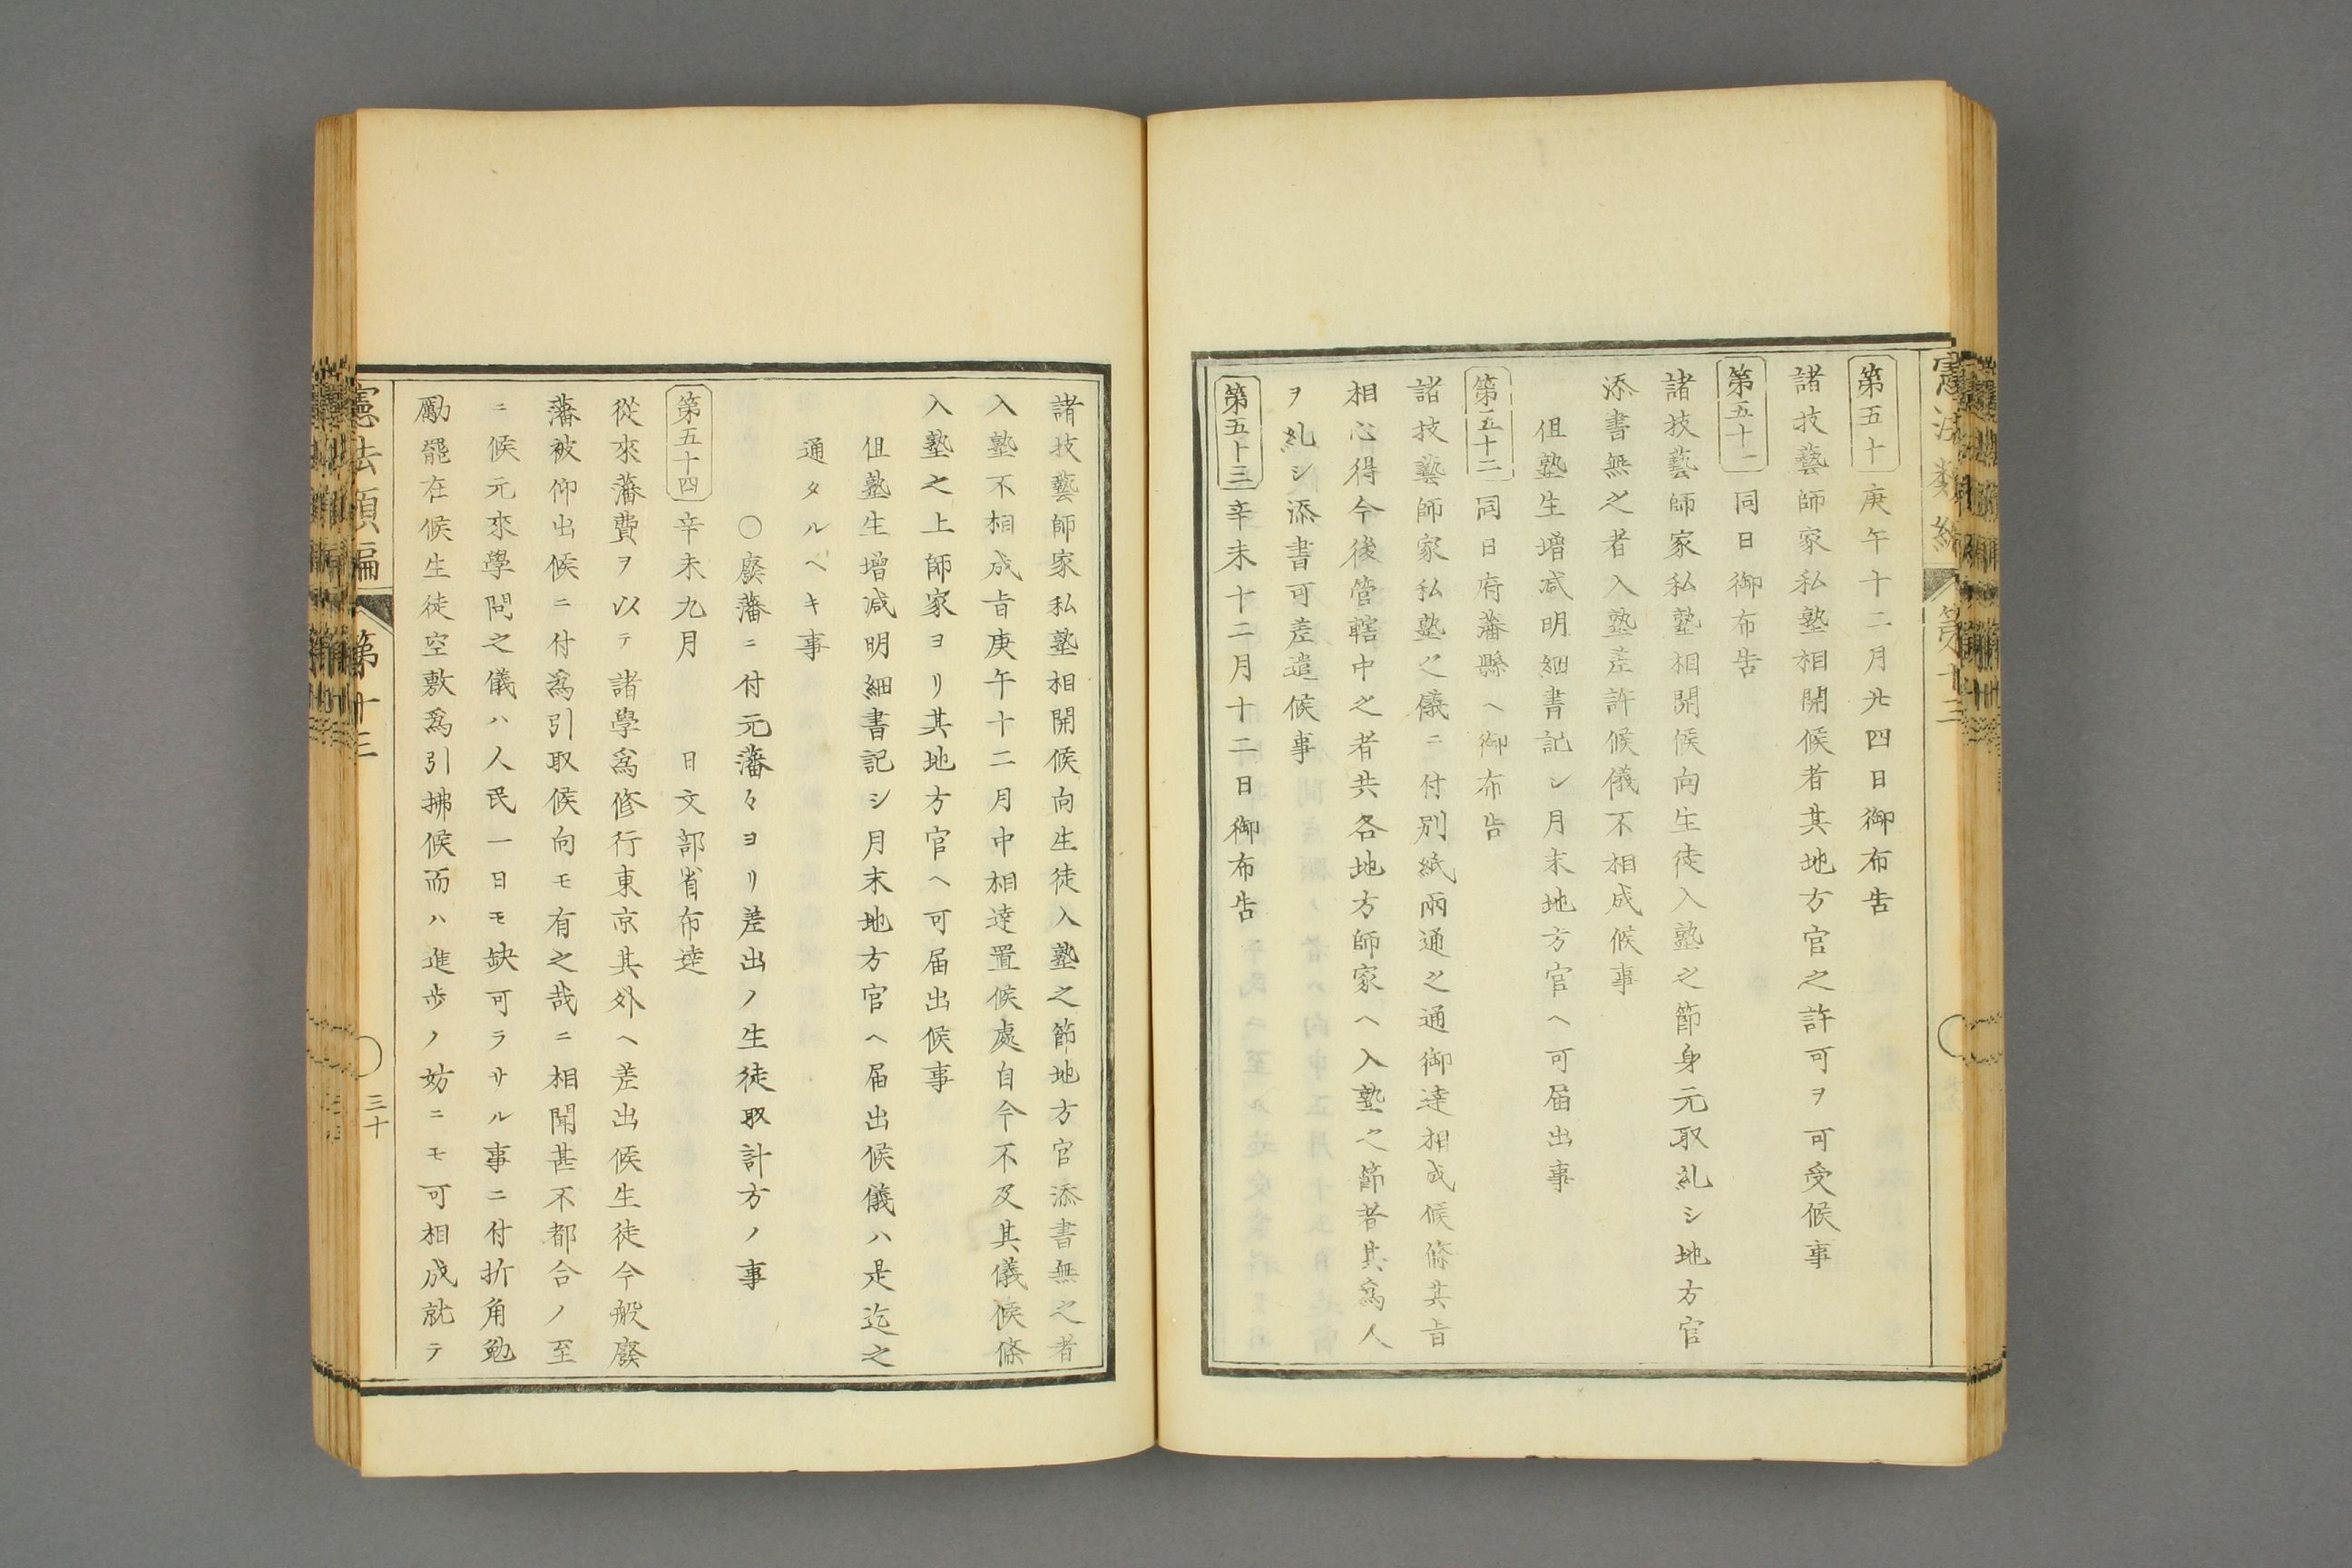 憲法類編 第十三
第五十 庚午十二月廿四日御布告
諸技藝師家私塾相開候者其地方官之許可ヲ可受候事
第五十一 同日御布告
諸技藝師家私塾相開候向生徒入塾之節身元取糺シ地方官
添書無之者入塾差許候儀不相成候事
但塾生增減明細書記シ月末地方官ヘ可届出事
第五十二 同日府藩縣ヘ御布告
諸技藝師家私塾之儀ニ付別紙兩通之通御達相成候條其旨
相心得今後管轄中之者共各地方師家ヘ入塾之節者其爲人
ヲ糺シ添書可差遣候事
第五十三 辛未十二月十二日御布告
諸技藝師家私塾相開候向生徒入塾之節地方官添書無之者
入塾不相成旨庚午十二月中相達置候處自今不及其儀候條
入塾之上師家ヨリ其地方官ヘ可届出候事
但塾生增減明細書記シ月末地方官ヘ届出候儀ハ是迄之
通タルヘキ事
〇廢藩ニ付元藩々ヨリ差出ノ生徒取計方ノ事
第五十四 辛未九月 日文部省布達
從來藩費ヲ以テ諸學爲修行東京其外ヘ差出候生徒今般廢
藩被仰出候ニ付爲引取候向モ有之哉ニ相聞甚不都合ノ至
ニ候元來學問之儀ハ人民一日モ缺可ラサル事ニ付折角勉
勵罷在候生徒空敷爲引拂候而ハ進歩ノ妨ニモ可相成就テ
憲法類編 第十三 三十